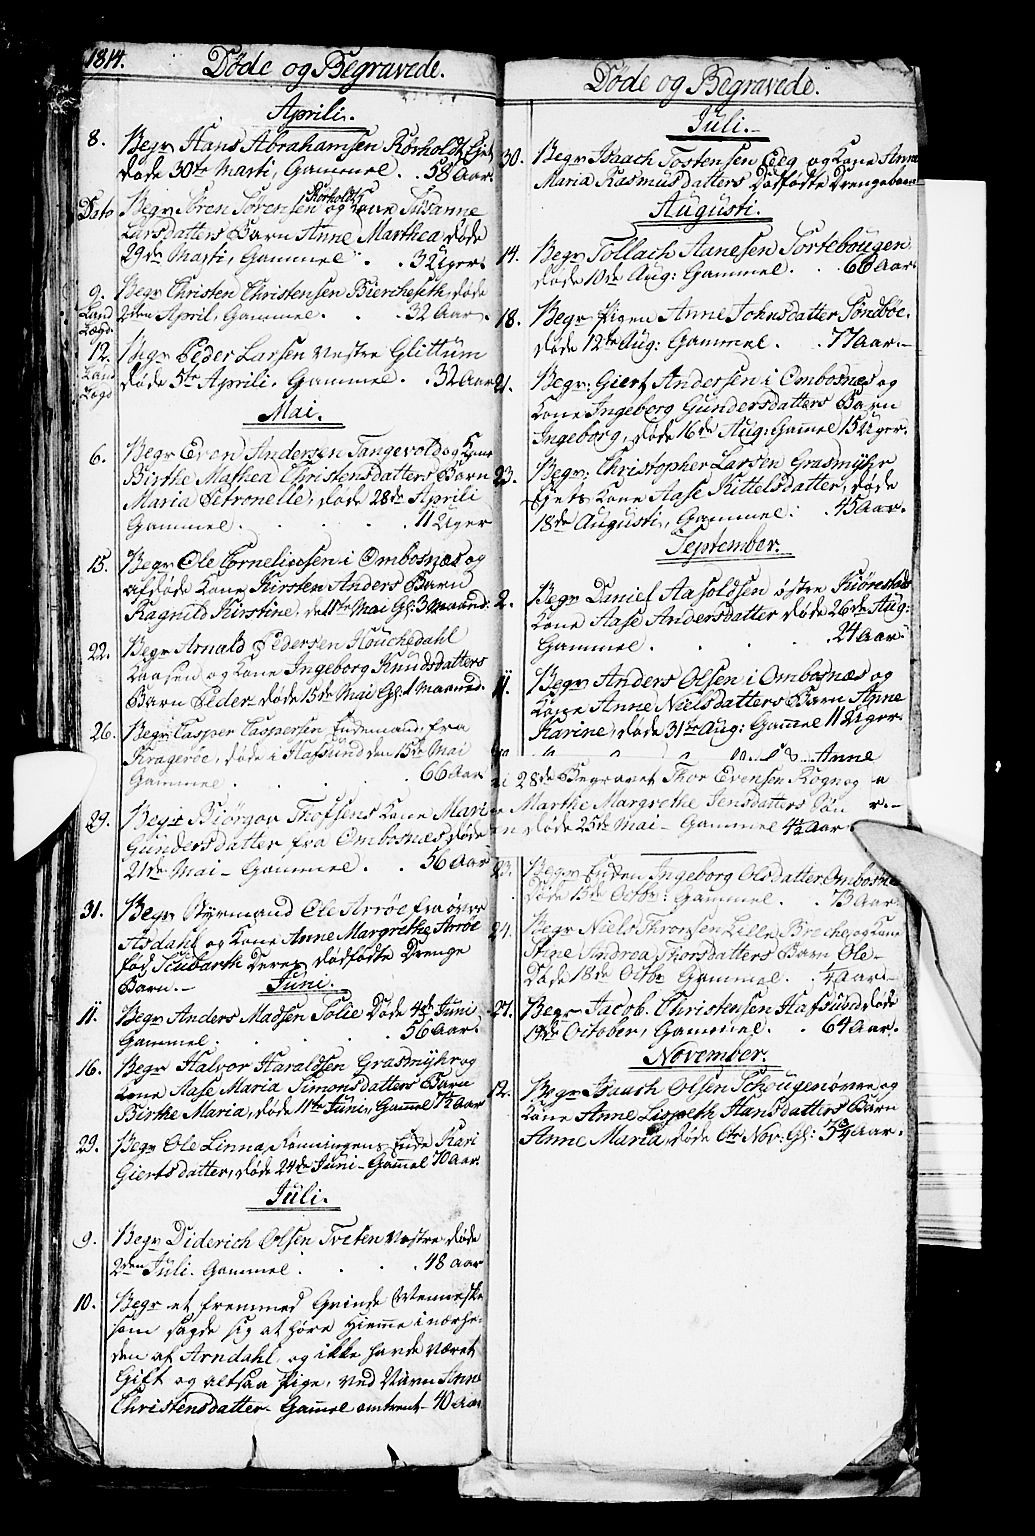 1814.
Døde og Begravede.
Aprili.
8. Begr Hans Abrahamsen Rörholdt
døde 30te Marti, Gammel . . 58 Aar.
Dato Begr Sören Sörensen Rörholdt og Kone Susanne
Larsdatters Barn Anne Marthea, døde
29de Marti, Gammel . . 3 Uger.
9. Begr Christen Christensen Biercheseth, døde
Land 2den April, Gammel . . 32 Aar.
12. Begr Peder Larsen Vestre Glittum
Land døde 5te Aprili, Gammel . 32 Aar
Mai.
6. Begr Even Andersen Tangevold og Kone
Birthe Mathea Christensdatters Barn
Maria Petronelle, døde 28de Aprili
Gammel . . . . 11 Uger
15. Begr Ole Cornelissen i Ombosnæs og
afdøde Kone Kirsten Anders Barn
Ragnild Kirstine, de 11te Mai Gl: 3 Maaned.
22. Begr Arnald Pedersen Houchedahl
Kaasen og Kone Ingeborg Knudsdatters
Barn Peder døde 15de Mai Gl: 1 Maaned.
26. Begr Casper Caspersen Enkemand fra
Kragerøe, døde i Hafsund den 15de Mai
Gammel . . . 66 Aar
29. Begr Biörgor Thofsens Kone Mari
Gundersdatter fra Ombosnæs døde
21de Mai - Gammel . . 36 Aar
31. Begr Styrmand Ole Arröe fra övre
Asdahl og Kone Anne Margrethe Arröe
fød Scubarth deres dødfødte Drenge
Barn. - Juni.
11. Begr Anders Madsen Solie Døde 4de Juni
Gammel . . . 56 Aar.
16. Begr Halvor Haraldsen Grasmyhr og
Kone Aase Maria Simonsdatters Barn
Birthe Maria, døde 11te Juni, Gammel 7½ Aar
29. Begr Ole Linna Rønningens Enke Kari
Giertsdatter, døde 24de Juni - Gammel 70 Aar.
Juli.
9. Begr Diderich Olsen Tveten Vestre døde
2den Juli. Gammel . . . 48 Aar
10. Begr et fremmed Qvinde Menneske
som sagde sig at høre Hjemme i nærhe-
den af Arndahl, og ikke havde været
Gift og altsaa Pige, ved Navn Anne
Christensdatter - Gammel omtrent - 40 Aar
Døde og Begravede.
Juli.-
30. Begr Isaach Tostensen Eeg og Kone Anne
Maria Rasmusdatters Dødfødte Drengebarn
Augusti.
14. Begr Tollach Aanesen Sortebougen
døde 10de Aug: Gammel . . 66 Aar.
18. Begr Pigen Anne Johnsdatter Sondböe.
døde 12te Aug: Gammel . . 77 Aar.-
21. Begr: Giert Andersen i Ombosnes og
Kone Ingeborg Gundersdatters Barn
Ingeborg, døde 16de Aug: Gammel 15 Uger.
23. Begr: Christopher Larsen Grasmyhr
Eyets Kone Aase Kittelsdatter, døde
18de Augusti, Gammel: . 45 Aar.
September.
2. Begr Daniel Aasoldsen østre Kiörestads
Kone Aase Andersdatter døde 26de Aug:
Gammel . . . 24 Aar
11. Begr Anders Olsen i Ombosnæs og
Kone Anne Nielsdatters Barn Anne
Karine, døde 31te Aug: Gammel 11 Uger.
Anne
28de Begravet Thor Evensen Rogn og
Marthe Margrethe Jensdatters Søn
døde 25de Mai - Gammel 4½ Aar
23. Begr Enken Ingeborg Olsdatter Ombosnes
Døde 15de Octbr: Gammel . . 73 Aar.
24. Begr Niels Thronsen Lille Breche, og Kone
Stine Andrea Thorsdatters Barn Ole-
Døde 18de Octbr Gammel. . ¼ Aar.-
27. Begr Jacob Christensen Hafsund, døde
19de October, Gammel. . 64 Aar.
November.
12. Begr Isaach Olsen Schougen övre og
Kone Anne Lisbeth Hansdatters Barn
Anne Maria, døde 6te Nov: Gl: 3¾ Aar.